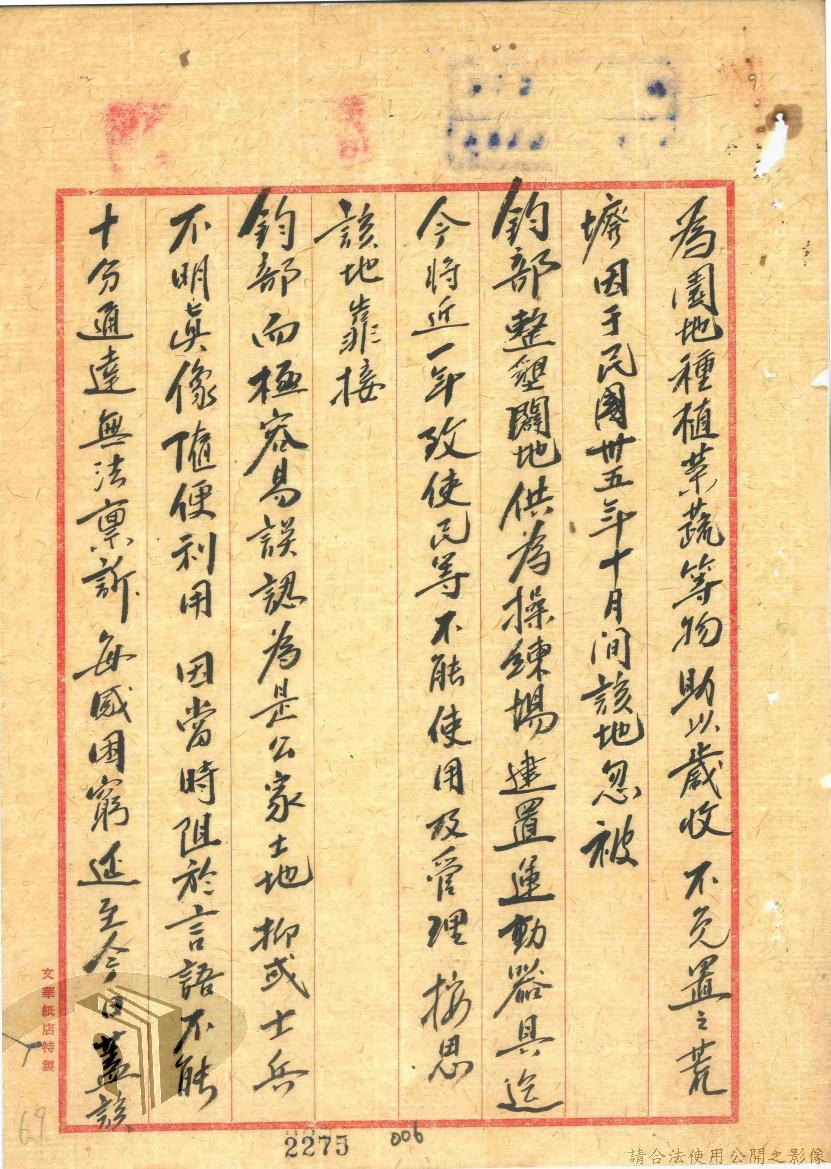 為園地種植菜蔬等物助以歲收不免置之荒
瘠因于民國卅五年十月间該地忽被
鈞部整墾闢地供為操鍊場建置運動器具迄
今將近一年致使民等不能使用及管理按思
該地靠接
鈞部而極容易誤認為是公家土地抑或士兵
不明眞像隨便利用因當時阻於言語不能
十分通達無法稟訴每感困窮延至今日蓋該
文華紙店特製
69
2275
006
請合法使用公開之影像